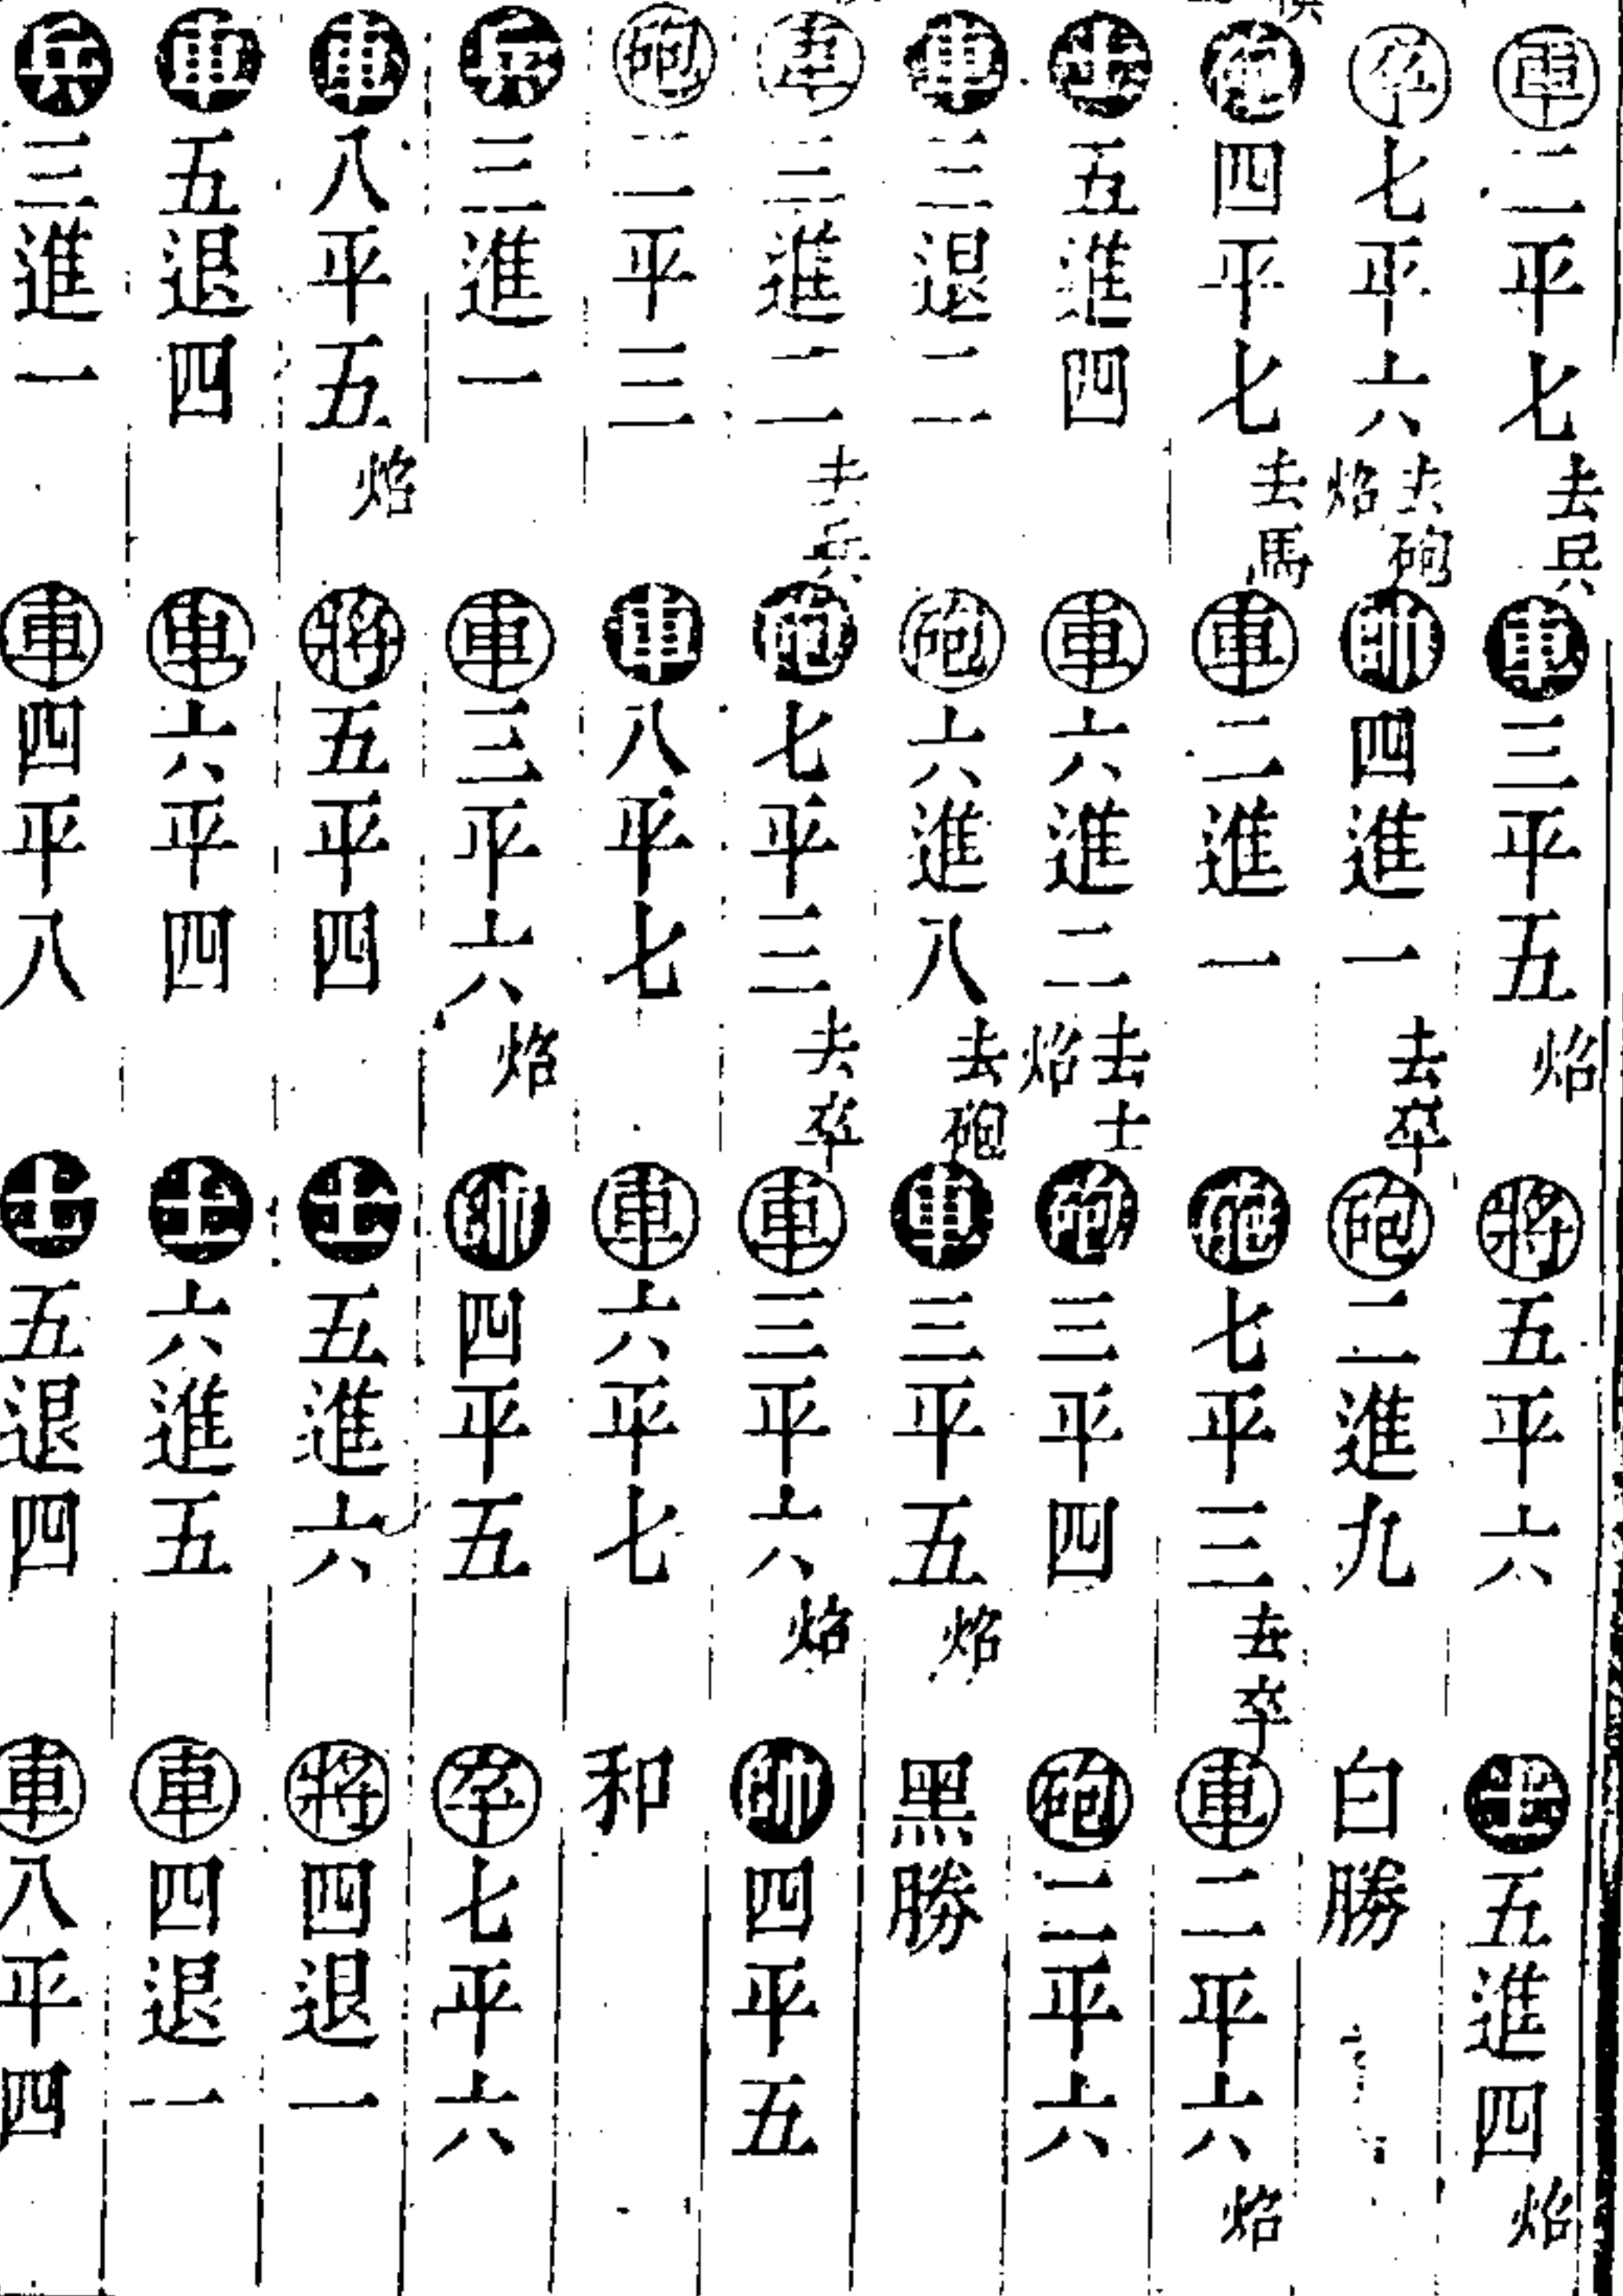 車二平七去兵車三平五炤將五平六士五進四炤
卒七平六去砲炤帥四進一去卒砲二進九白勝
炮四平七去馬車二進一炮七平三去卒車二平六炤
士五進四車六進二去士炤炮三平四砲二平六
車三退二砲六進八去砲車三平五炤黑勝
車三進二去兵炮七平三去卒車三平六炤帥四平五
砲二平三車八平七車六平七和
兵三進一車三平六炤帥四平五卒七平六
車八平五炤將五平四士五進六將四退一
車五退四車六平四士六進五車四退一
兵三進一車四平八士五退四車八平四